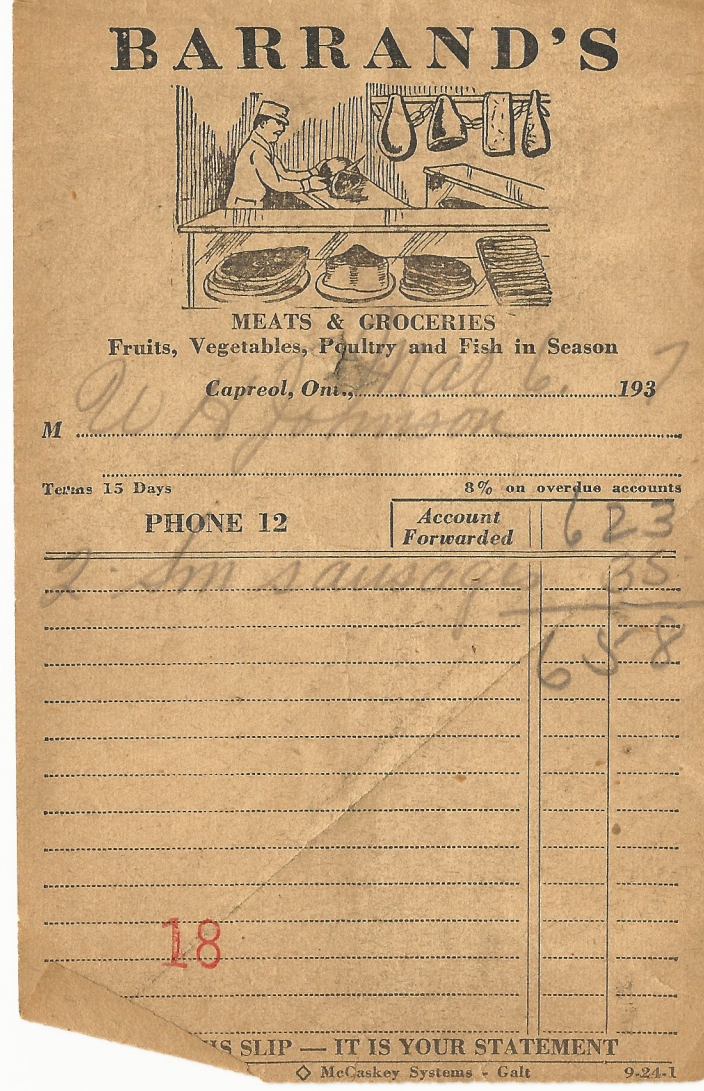 BARRAND'S
MEATS & GROCERIES
Fruits, Vegetables, Poultry and Fish in Season
Capreol, Ont., Mar 6, 1937
M W Johnson
Terms 15 Days 8% on overdue accounts
PHONE 12 Account Forwarded 6 23
2 Sm sausage 35
6 58
18
SLIP — IT IS YOUR STATEMENT
◇ McCaskey Systems - Galt 9-24-1